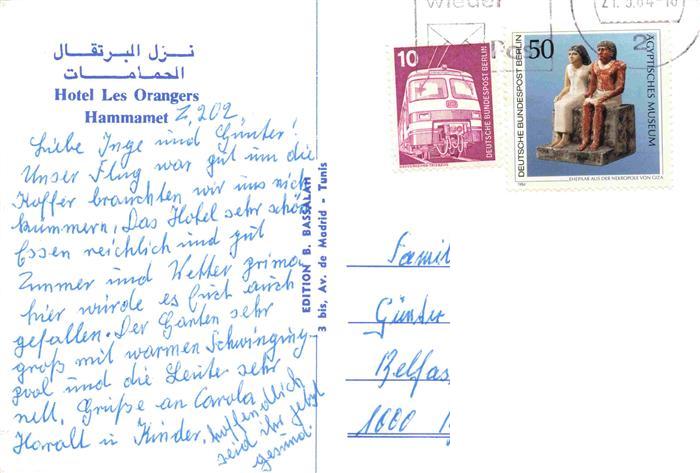 نزل البرتقال
الحمامات
Hotel Les Orangers
Hammamet Z, 202
Liebe Inge und Günter!
Unser Flug war gut um die
Koffer brauchten wir uns nich
kümmern. Das Hotel sehr schön
Essen reichlich und gut
Zimmer und Wetter prima
hier würde es Euch auch
gefallen. Der Garten sehr
groß mit warmen Schwimming-
pool und die Leute sehr
nett. Grüße an Carola
Haralt u Kinder. hoffendlich
seid ihr jetzt
gesund.
EDITION B. BASSALAH
3 bis, Av. de Madrid - Tunis
wieder
21.5.84-18
2
10
DEUTSCHE BUNDESPOST BERLIN
50
DEUTSCHE BUNDESPOST BERLIN
ÄGYPTISCHES MUSEUM
EHEPAAR AUS DER NEKROPOLE VON GIZA
1984
Famil
Günter
Belfas
1000